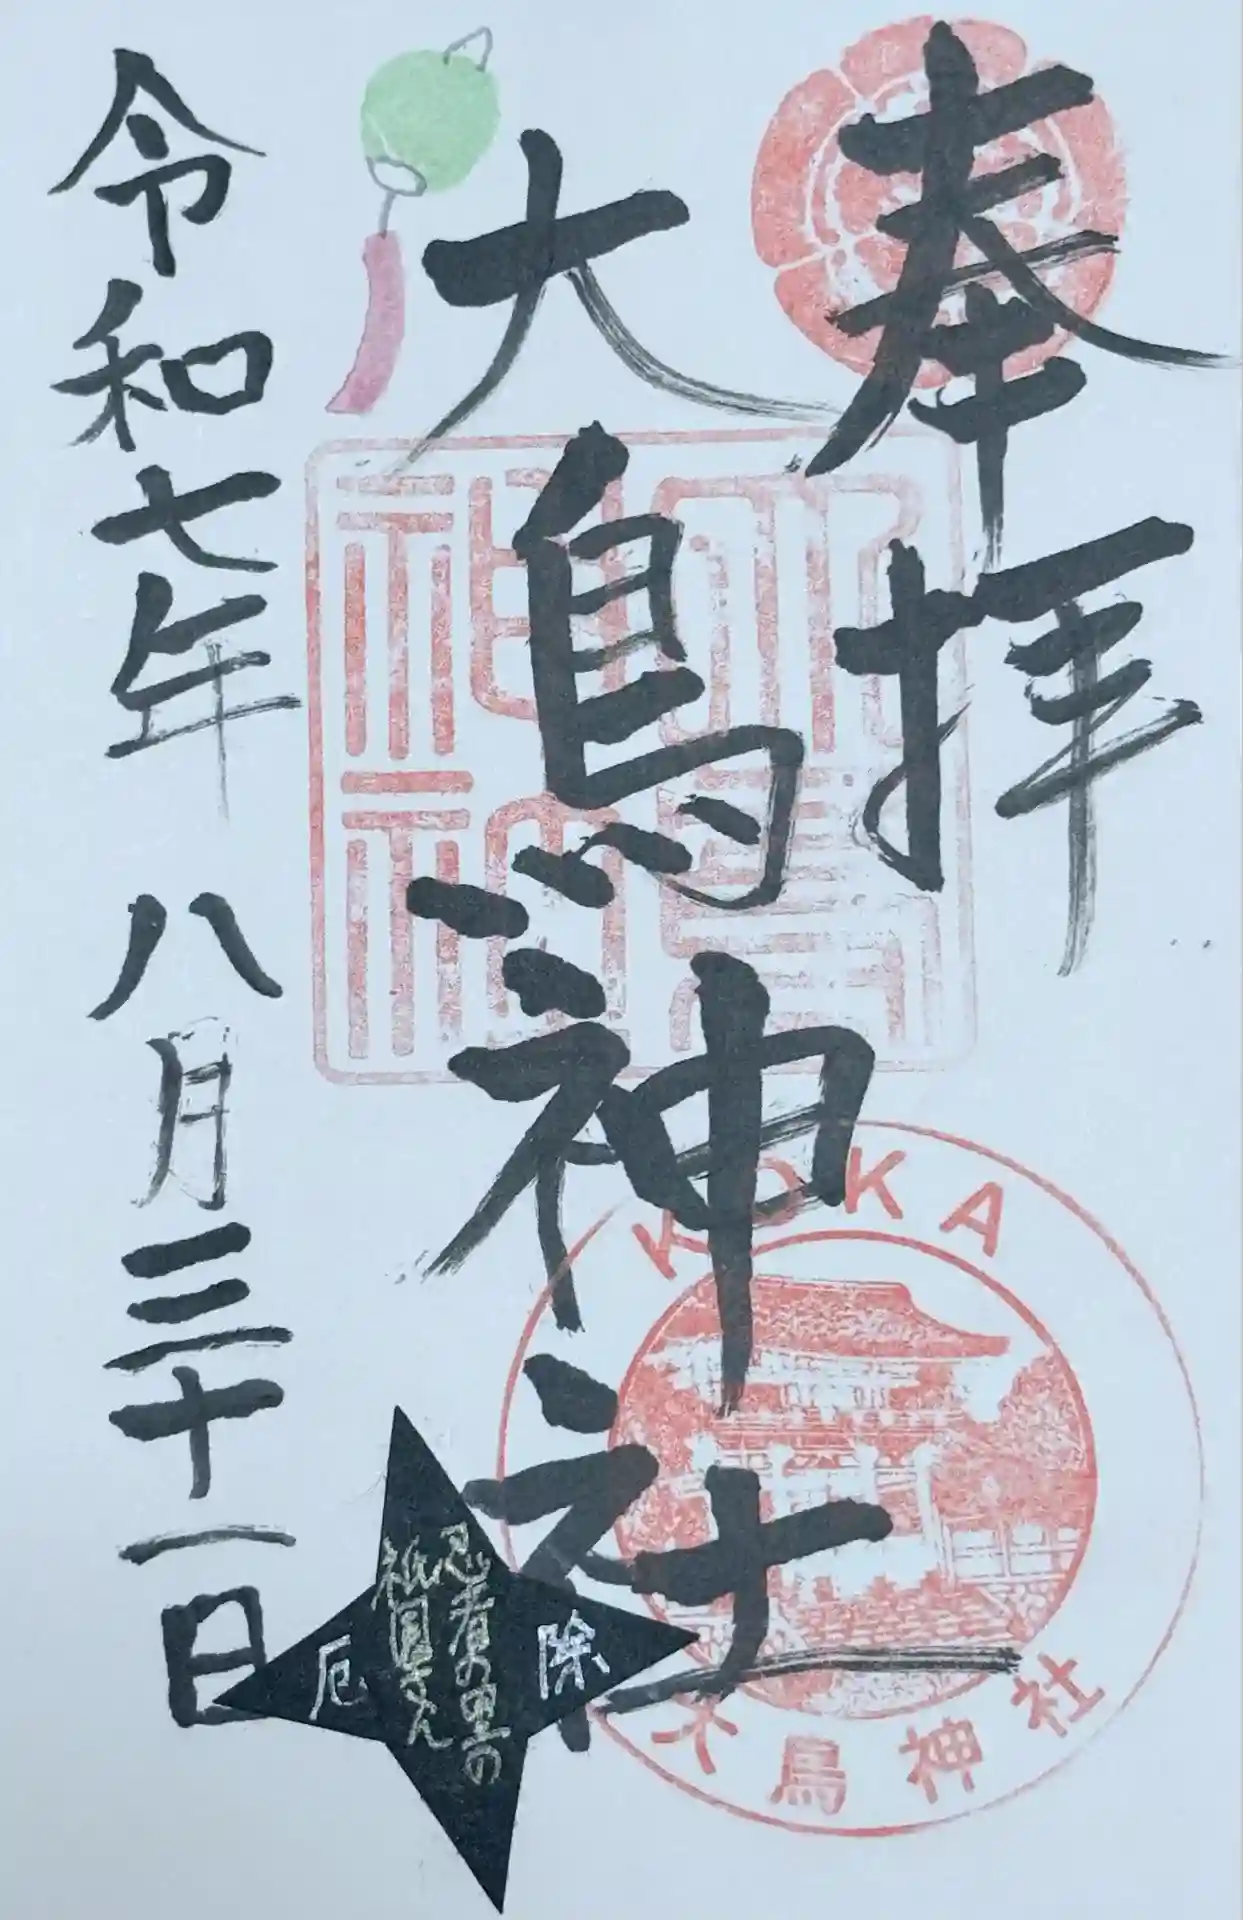 奉拝
大鳥神社
令和七年八月三十一日
KOKA
大鳥神社
忍者の里の
祇園さん
除
厄